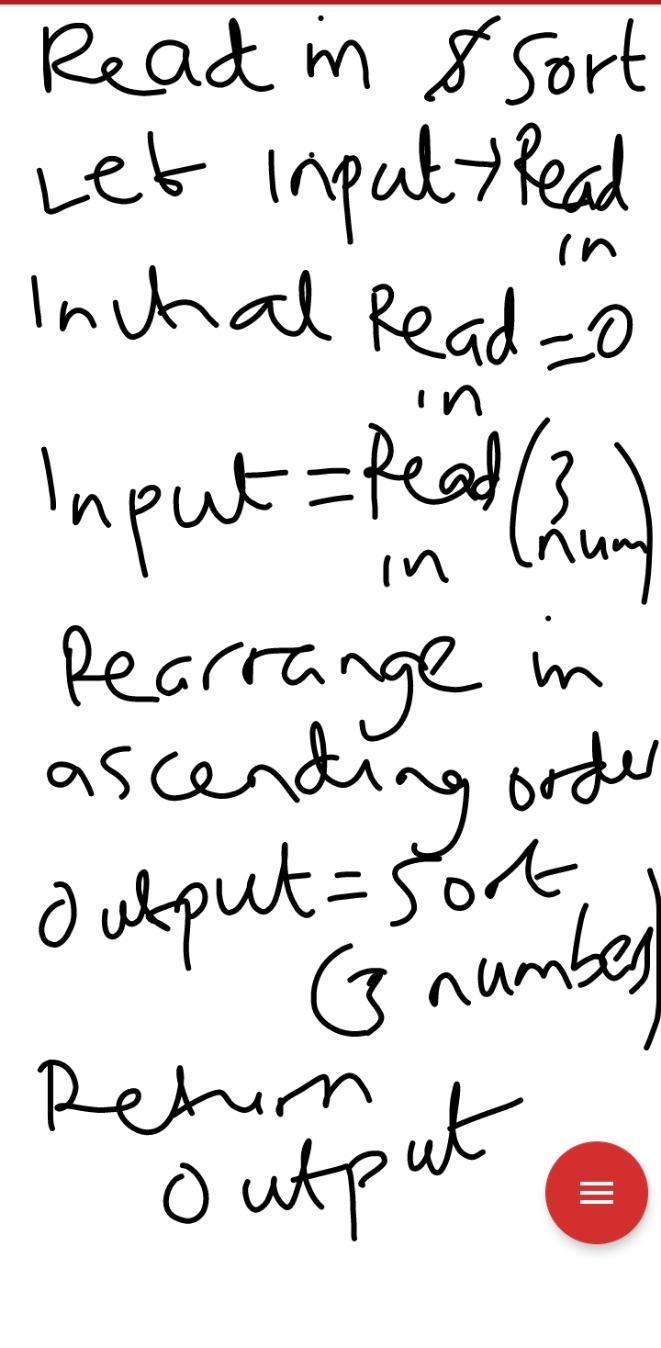 Read in & Sort
Let Input → Read in
Initial Read in = 0
Input = Read in (3 num)
Rearrange in
ascending order
Output = Sort
(3 numbers)
Return
Output